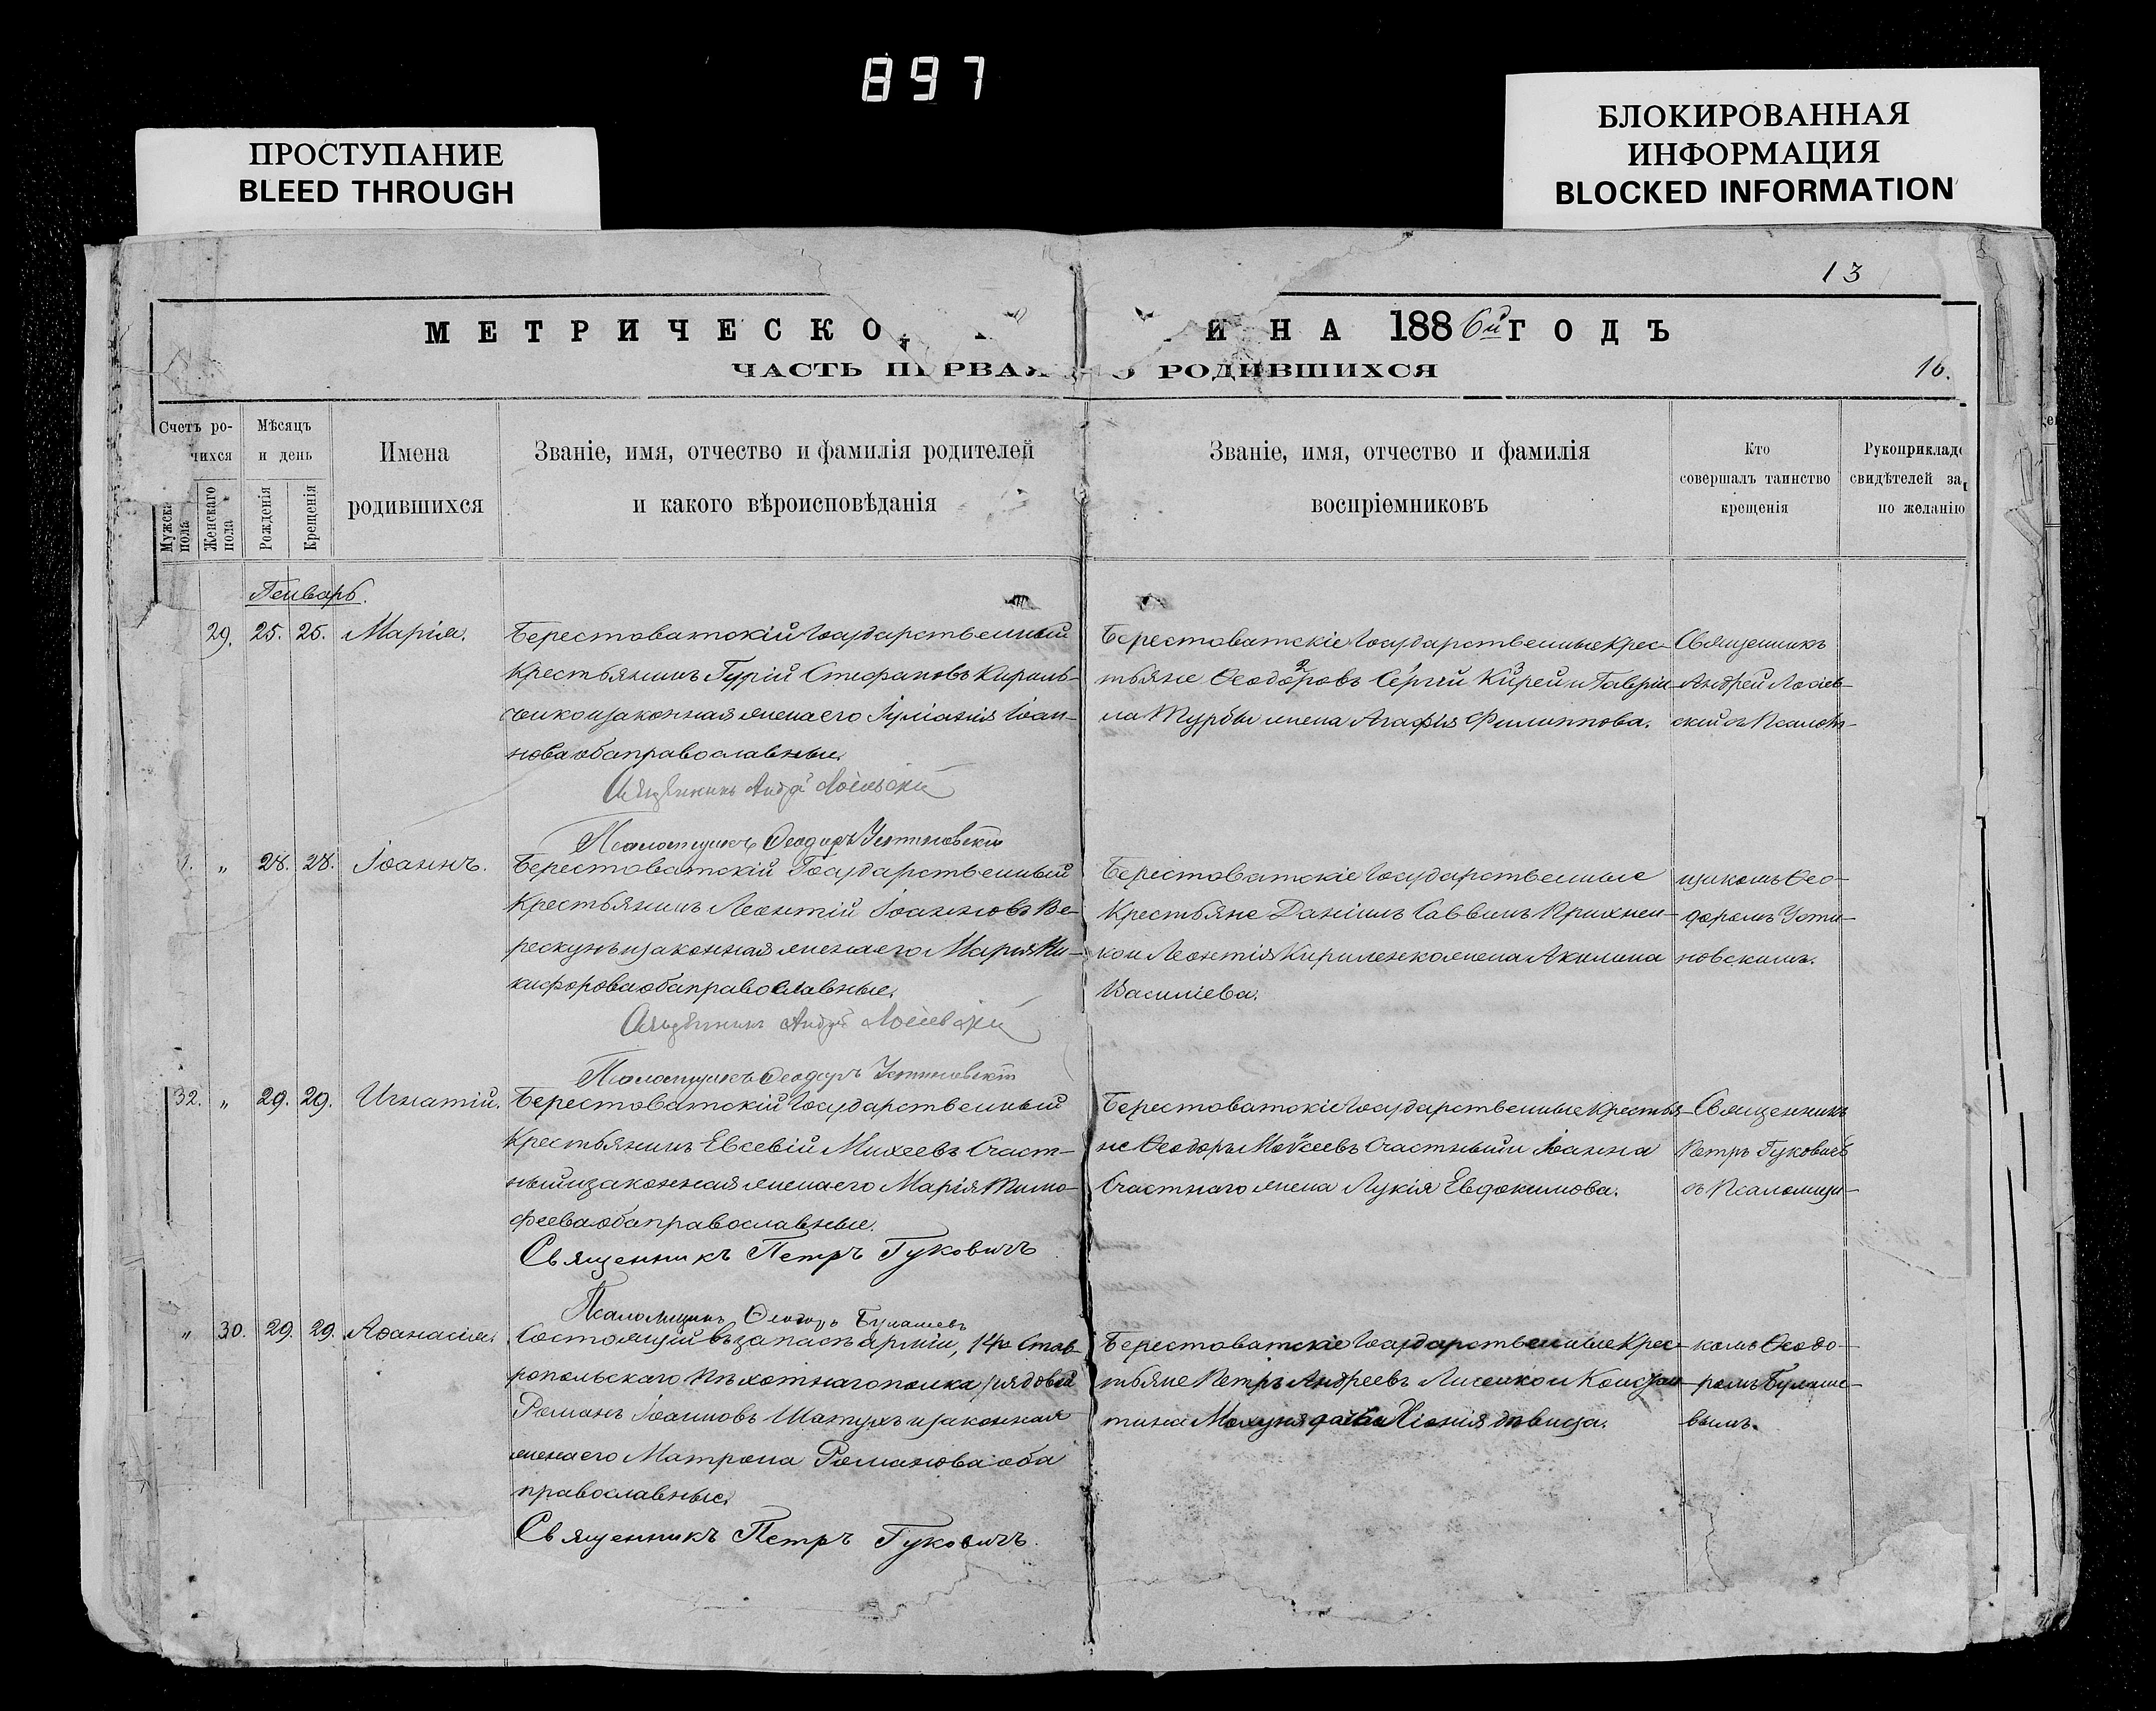 897
ПРОСТУПАНИЕ
BLEED THROUGH
БЛОКИРОВАННАЯ
ИНФОРМАЦИЯ
BLOCKED INFORMATION
13
МЕТРИЧЕСКО И НА 1886й ГОДЪ
ЧАСТЬ ПЕРВАЯ О РОДИВШИХСЯ
16.
Счетъ ро-
чихся
Мужска
пола
Женскаго
пола
Мѣсяцъ
и день
Рожденія
Крещенія
Имена
родившихся
Званіе, имя, отчество и фамилія родителей
и какого вѣроисповѣданія
Званіе, имя, отчество и фамилія
воспріемниковъ
Кто
совершалъ таинство
крещенія
Рукоприкладс
свидѣтелей за
по желанію
Генварь.
29. 25. 25. Марія.
Берестоватскій Государственный
Крестьянинъ Гурій Стефановъ Кираль-
чик и законная жена его Іуліанія Іоан-
нова оба православные.
Священникъ Андрей Лосіевскій
Псаломщикъ Ѳеодоръ Устиновскій
Берестоватскіе Государственные Крес-
тьяне Ѳеодоровъ 2 Сергій 1 Кирей 3 и Гаврии-
ла Турбы жена Агафія Филиппова.
Священникъ
Андрей Лосіев-
скій съ Псалом-
1. „ 28. 28. Іоаннъ.
Берестоватскій Государственный
Крестьянинъ Леонтій Іоанновъ Ве-
рескунъ и законная жена его Марія Ни-
кифорова оба православные.
Священникъ Андрей Лосіевскій
Псаломщикъ Ѳеодоръ Устиновскій
Берестоватскіе Государственные
Крестьяне Даніилъ Саввинъ
Леонтія Кириленка жена Акилина
Василіева.
щикомъ Ѳео-
доромъ Усти-
новскимъ.
32. „ 29. 29. Игнатій.
Берестоватскій Государственный
Крестьянинъ Евсевій Михеевъ Счаст-
ный и законная жена его Марія Тимо-
феева оба православные.
Священникъ Петръ Гуковичъ
Псаломщикъ Ѳеодоръ Булашевъ
Берестоватскіе Государственные Крестья-
не Ѳеодоръ Моѵсеевъ Счастный и Іоанна
Счастнаго жена Лукія Евдокимова.
Священникъ
Петръ Гуковичъ
съ Псаломщи-
„ 30. 29. 29. Аѳанасія.
Состоящій въ запасѣ арміи, 14го Став-
ропольскаго Пѣхотнаго полка, рядовой
Романъ Іоанновъ Шатухъ и законная
жена его Матрона Романова оба
православные.
Священникъ Петръ Гуковичъ.
Берестоватскіе Государственные Крес-
тьяне Петръ Андреевъ Лисенко и Констан-
тина Махуня дочь Хіонія дѣвица.
комъ Ѳеодо-
ромъ Булаше-
вымъ.